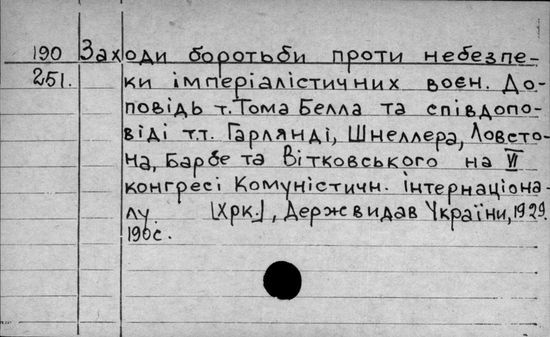 190 Заходи боротьби проти небезпе-
251. ки імперіалістичних воєн. До-
повідь т. Тома Белла та співдопо-
віді т.т. Гарлянді, Шнеллера, Ловсто-
на, Барбе та Вітковського на VI
конгресі Комуністичн. інтернаціона-
лу. [Хрк.], Держвидав України, 1929.
190с.